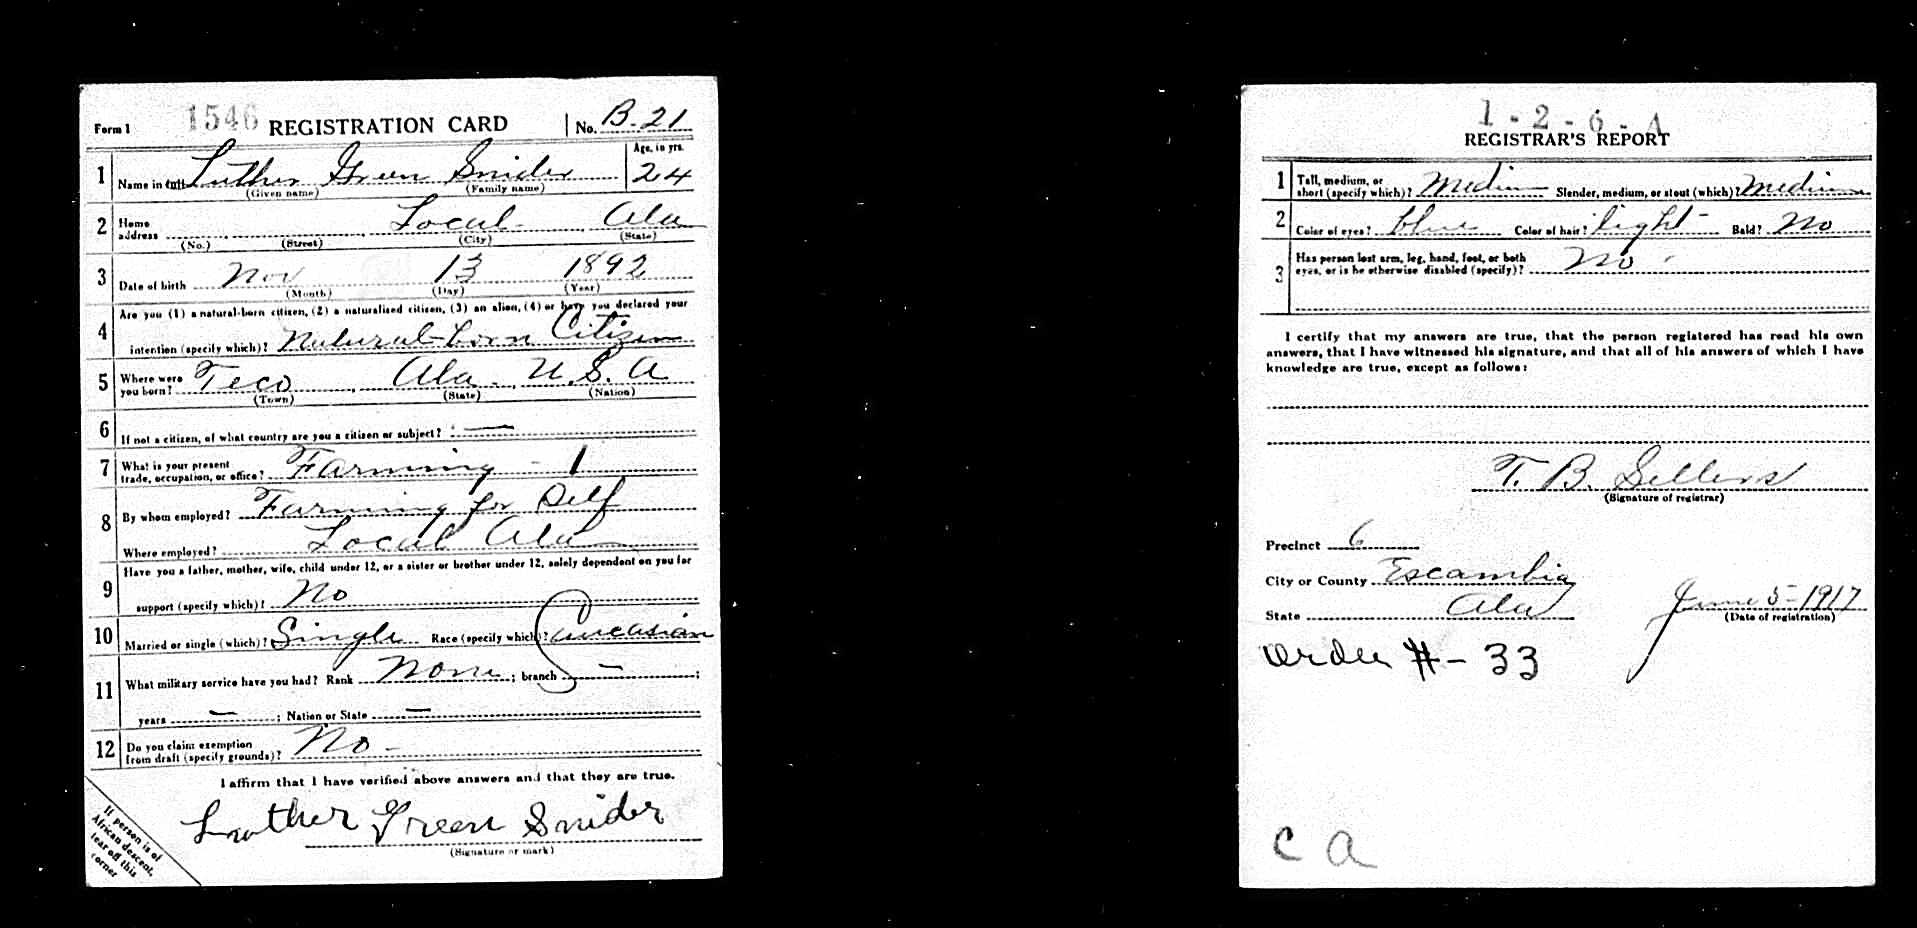 Form 1 1546 REGISTRATION CARD No. B-21
1 Name in full Luther Green Snider Age, in yrs. 24
(Given name) (Family name)
2 Home address Local Ala
(No.) (Street) (City) (State)
3 Date of birth Nov 13 1892
(Month) (Day) (Year)
4 Are you (1) a natural-born citizen, (2) a naturalized citizen, (3) an alien, (4) or have you declared your
intention (specify which)? Natural-born Citizen
5 Where were you born? Teco, Ala., U.S.A
(Town) (State) (Nation)
6 If not a citizen, of what country are you a citizen or subject? —
7 What is your present trade, occupation, or office? Farming - 1
8 By whom employed? Farming for Self
Where employed? Local Ala
9 Have you a father, mother, wife, child under 12, or a sister or brother under 12, solely dependent on you for
support (specify which)? No
10 Married or single (which)? Single Race (specify which)? Caucasian
11 What military service have you had? Rank None; branch —;
years —; Nation or State —
12 Do you claim exemption from draft (specify grounds)? No -
I affirm that I have verified above answers and that they are true.
Luther Green Snider
(Signature or mark)
If person is of
African descent,
tear off this
corner
1-2-6-A
REGISTRAR'S REPORT
1 Tall, medium, or short (specify which)? Medium Slender, medium, or stout (which)? Medium
2 Color of eyes? blue Color of hair? light - Bald? No
3 Has person lost arm, leg, hand, foot, or both
eyes, or is he otherwise disabled (specify)? No
I certify that my answers are true, that the person registered has read his own
answers, that I have witnessed his signature, and that all of his answers of which I have
knowledge are true, except as follows:
T. B. Sellers
(Signature of registrar)
Precinct 6
City or County Escambia
State Ala June 5-1917
(Date of registration)
Order #- 33
C A